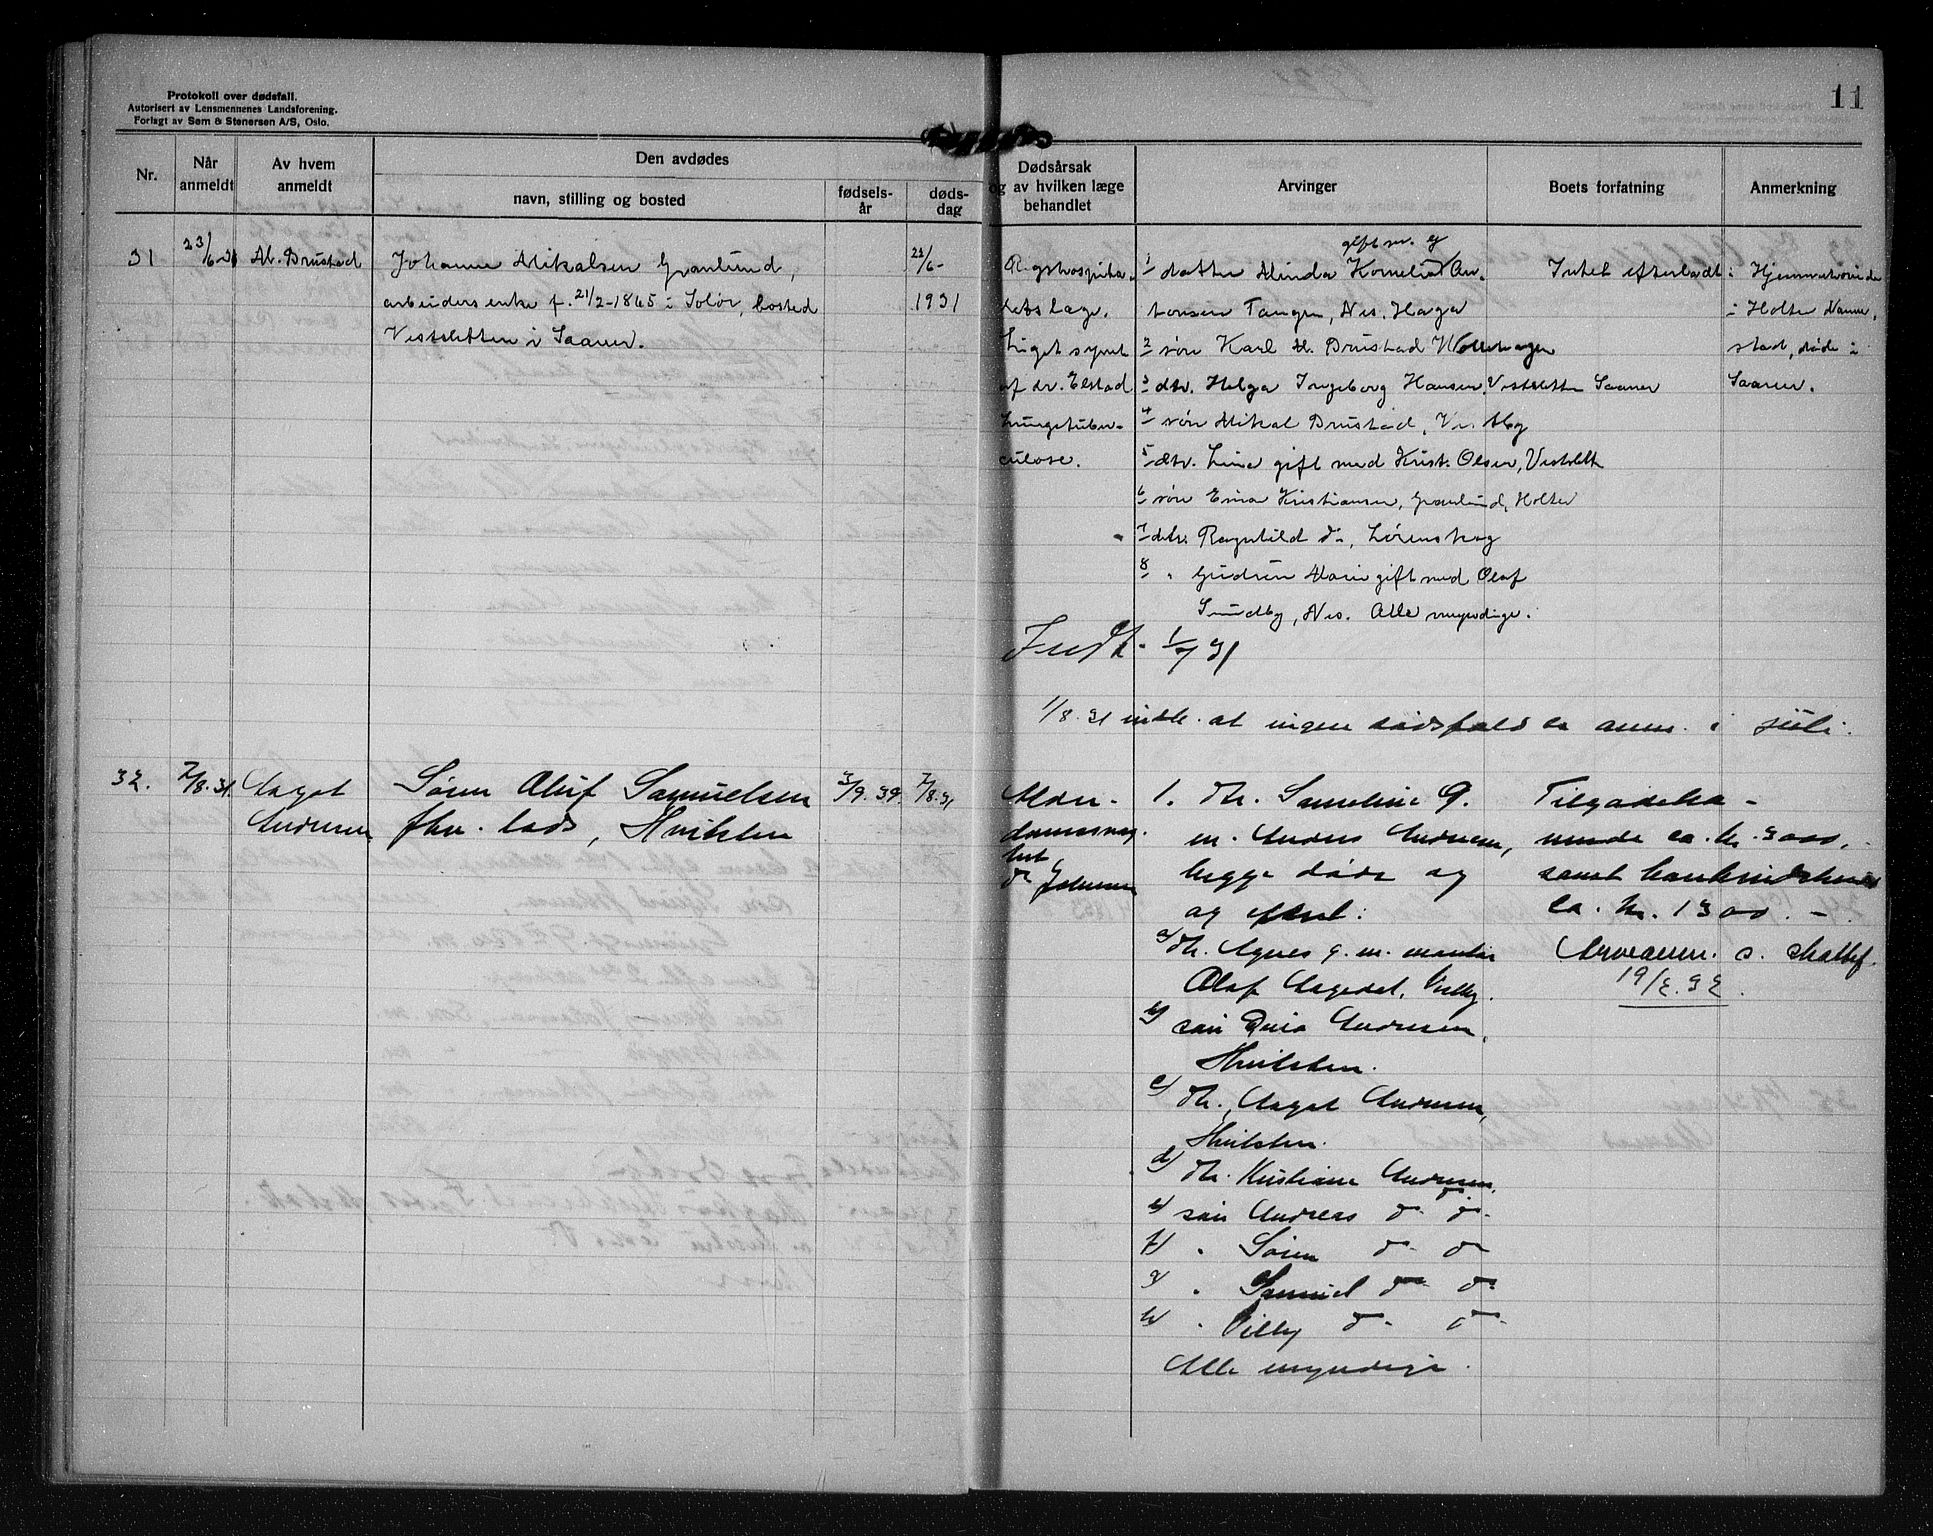 Protokoll over dødsfall.
Autorisert av Lensmennenes Landsforening.
Forlagt av Sem & Stenersen A/S, Oslo.
11
Nr.
Når anmeldt
Av hvem anmeldt
Den avdødes
navn, stilling og bosted
fødselsår
dødsdag
Dødsårsak
og av hvilken læge
behandlet
Arvinger
Boets forfatning
Anmerkning
31
23/6-31
M. Brustad
Johanne Mikalsen Granlund,
arbeiders enke f. 21/2-1865 i Solør, bosted
Vestsletten i Saaner.
/6-
1931
Rigshospita-
lets læge.
af dr. Elstad
Lungetuber-
culose.
gift m. ej
1 datter Minda Kornelia An-
tonsen Tangen, Nes, Haga
2 søn Karl M. Brustad
3 dtr. Helga Ingeborg Hansen, Vestsletten Saaner
4 søn Mikal Brustad, Vestby
5 dtr. Lina gift med Krist. Olsen, Vestslett
6 søn Kristiansen, Granlund, Holter
7 dtr. Ragnhild do, Lørenskog
8 " Gudrun Marie gift med Olaf
Sundby, Nes. Alle myndige.
Intet efterladt
Hjemmehørende
i Holter Nanne-
stad, døde i
Saaner.
Indb. 1/7 31
1/8.31 indb. at ingen dødsfald er anm. i juli.
32.
7/8.31.
Aagot
Andresen
Søren Oluf Samuelsen
fhv. lods, Hvitsten
3/9.39.
7/8.31
Alder-
domssvag-
het
dr Johnsen
1. dtr. Sameline g.
m. Anders Andresen,
begge døde og
og efterl:
a) dtr. Agnes g. m.
Olaf
b) søn Andresen,
Hvitsten.
c) dtr. Aagot Andresen,
Hvitsten.
d) dtr. Kristiane Andresen,
e) søn Andreas do do
f) " Søren do do
g) " Samuel do do
h) " Villy do do
Alle myndige.
Tilgodeha-
vende ca. kr. 3000,-
samt bankindskud
ca. kr. 1300.-
Arveanm. s. skattef.
19/2.32.